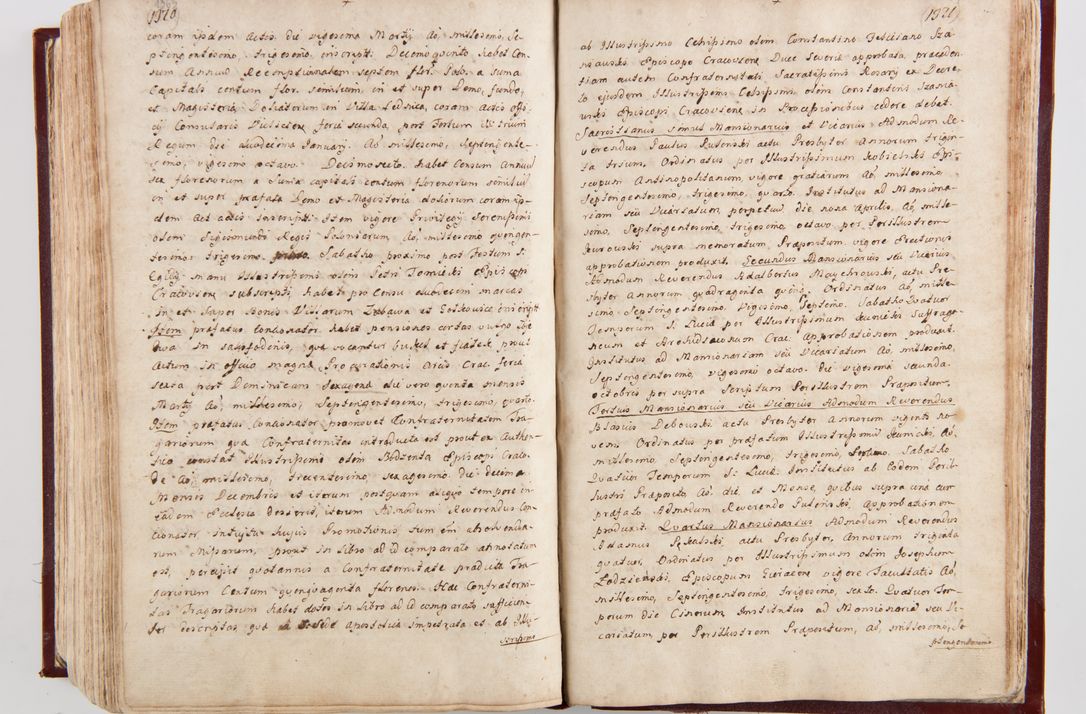 1320
coram ipdem Actis die vigesima Martij Ao, millesimo, Se-
ptengentesimo, trigesimo, inscripti. Decimo quinto habet Cen-
sum Annuum Reemptionalem septem flor. Pol. a suma
Capitali centum flor. similium, in et super Domo, fundo,
et Magisteria Doliatorum in Villa Lednica, coram Actis offi-
cij Consularis feria secunda, post Festum SS. trium
Regum die duodecima Januarij Ao, millesimo, septengente-
simo, vigesimo octavo. Decimo sexto. habet Censum Annuum
sex florenorum a Suma capitali centum florenorum similium
in et super præfata Domo et Magisteria doliorum coram ip-
dem Actis inscripti. Item vigore Privilegij Serenissimi
olim Sigismundi Regis Poloniarum Ao, millesimo quingen-
tesimo trigesimo Sabatho proximo post Festum S.
manu Illustrissimi olim Petri Tomicki Episcopi
Cracoviens: subscripti, habet pro Censu duodecim marcas
in et super Bonis Villarum Zabawa et inscripti
Item præfatus Concionator habet pensiones certas vulgo
dwa in salisfodinis, qua vocantur et prout
Actum in officio magna Procurationis Arcis Crac: feria
sexta post Dominicam Sexagena die vero quinta mensis
Martij Ao, millesimo, Septengentesimo, trigesimo, quarto.
Item præfatus Concionator promovet Confraternitatem Tra-
gariorum qua Confraternitas introducta est prout ex Authen-
tico constat Illustrissimo olim Bodzenta Episcopi Craco:
de Ao, millesimo, trecentesimo, sexagesimo. Die decima
Mensis Decembris et iterum postquam aliquo tempore in
eadem Ecclesia desserit, iterum Admodum Reverendus Con-
cionator Instituta hujus Promotionis tum in absolvenda-
rum Missarum, prout in Libro ad id comparato annotatum
est, percipit quotannis a Confraternitate prædicta Tra-
gariorum Centum quinquaginta florenos. Hæc Confraterni-
tas Tragariorum habet dotes in libro ad id comparato sufficien-
ter descriptas qua a Sede Apostolica impetrata et ab Illu-
strissimo
1321
ab Illustrissimo Celsissimo olim Constantino Feliciano Sza-
niawski Episcopo Cracoviens Duce Severiæ approbata, præceden-
tiam autem Confraternitati Sacratissimi Rosarij ex Decre-
to ejusdem Illustrissimi Celsissimi olim Constantini Szania-
wski Episcopi Cracoviens in Processionibus cedere debet.
Sacristianus simul Mansionarius et Vicarius Admodum Re-
verendus Paulus Rutenski actu Presbyter Annorum trigin-
ta trium, Ordinatus per Illustrissimum Kobielski Epi-
scopum Antinopolitanum, vigore gratiarum Ao, millesimo,
Septengentesimo, trigesimo, quarto. Institutus ad Mansiona-
riam seu Vicariatum perpetuum die nona Aprilis, Ao, mille-
simo, Septengentesimo, trigesimo, octavo per Perillustrem
supra memoratum, Præpositum, vigore Erectionis
approbationem produxit. Secundus Mansionarius seu Vicarius
Admodum Reverendus Adalbertus Maychrowski, actu Pre-
sbyter Annorum quadraginta quinq. Ordinatus Ao, mille-
simo, Septengentesimo, Vigesimo, Septimo. Sabatho Quatuor
Temporum S. Luciæ per Illustrissimum Kunicki Suffraga-
neum et Archidiaconum Crac: Approbationem produxit.
Institutus ad Mansionariam seu Vicariatum Ao, millesimo,
Septengentesimo, vigesimo octavo. die vigesima secunda.
octobris per supra scriptum Perillustrem Præpositum.
Tertius Mansionarius seu Vicarius Admodum Reverendus
Blasius Debowski actu Presbyter Annorum viginti no-
vem. Ordinatus per præfatum Illustrissimum Kunicki, Ao,
millesimo, Septengentesimo, trigesimo, Septimo. Sabatho
Quatuor Temporum S: Luciæ. Institutus ab Eodem Peril-
lustri Præposito Ao, die, et Mense, quibus supra una cum
præfato Admodum Reverendo Rutenski, Approbationem
produxit. Quartus Mansionarius Admodum Reverendus
Adamus actu Presbyter, Annorum triginta
quatuor, Ordinatus per Illustrissimum olim Josephum
Episcopum vigore Facultatis Ao,
millesimo, Septengentesimo, trigesimo, sexto. Quatuor Tem-
porum die Cinerum, Institutus ad Mansionaria seu Vi-
cariatum, per Perillustrem Præpositum, Ao, millesimo, Se-
ptengentesimo